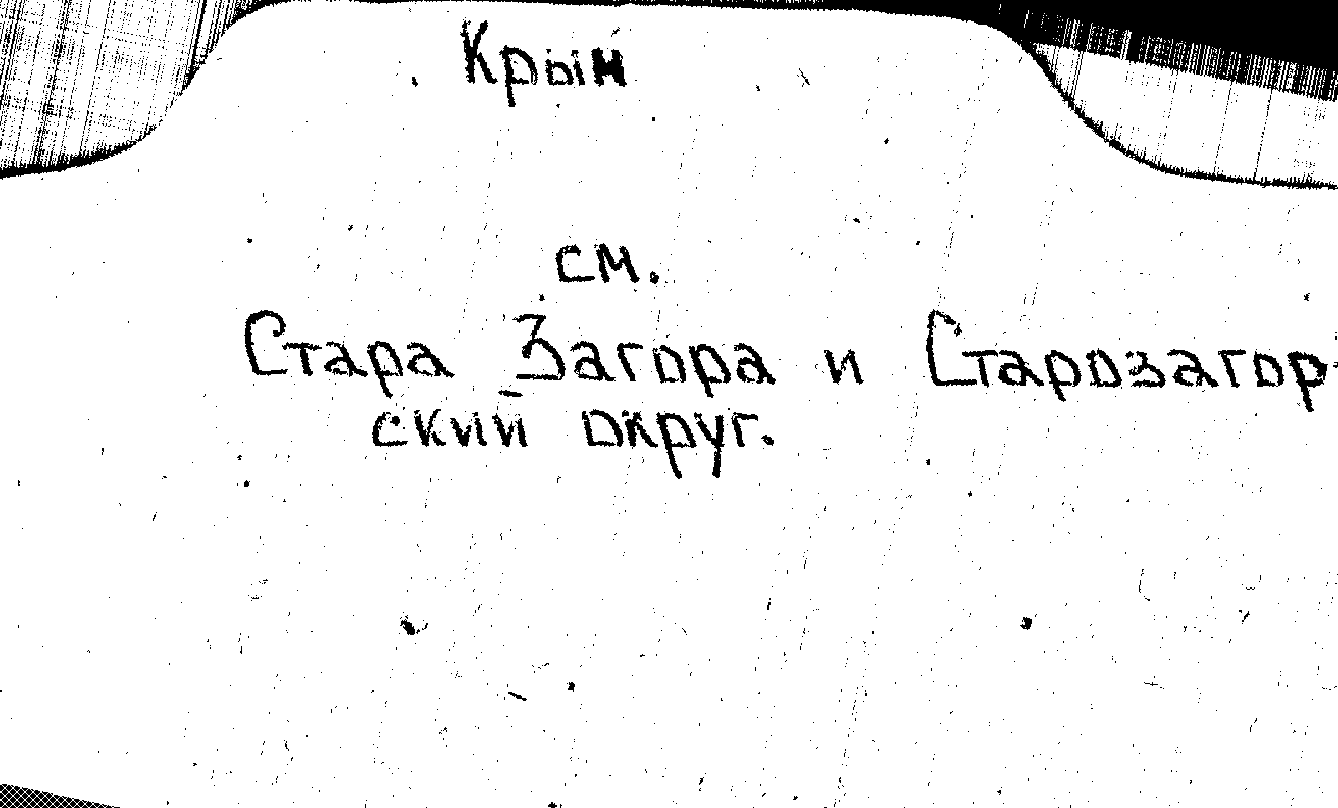 Крым
см.
Стара Загора и Старозагор
ский округ.